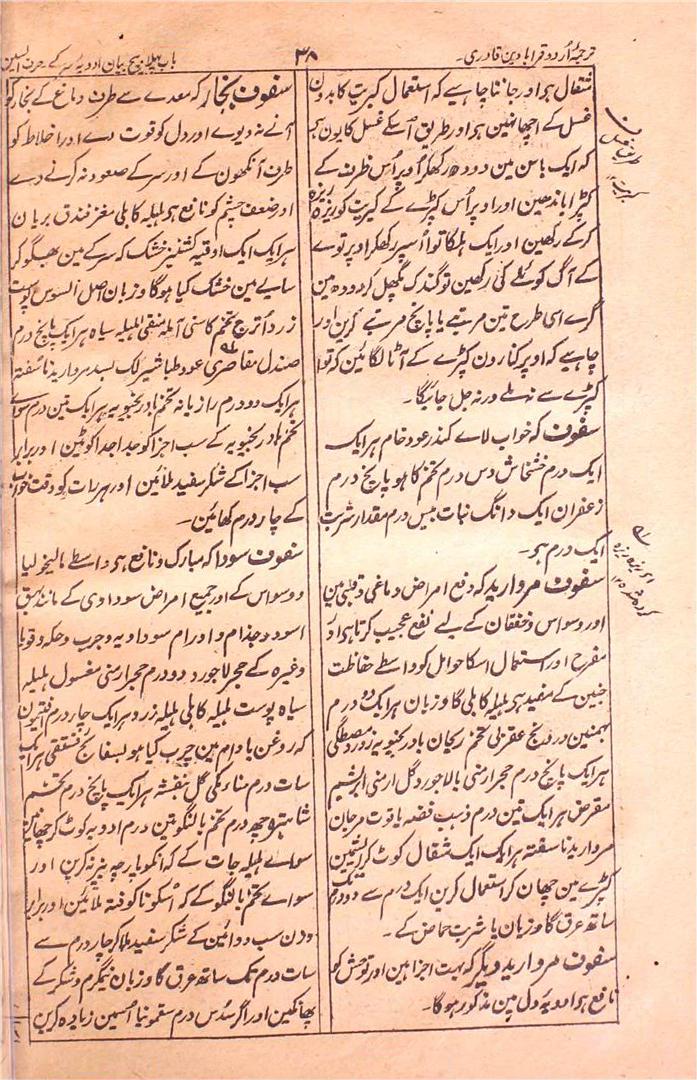 ترجمۂ اُردو قرابادین قادری۔
۳۸
باب پہلا بیچ بیان ادویۂ سر کے حرف السین
مثقال ہی اور جاننا چاہیے کہ استعمال کبریت کا بدون
غسل کے اچھا نہین ہی اور طریق اُسکے غسل کا یون ہی
کہ ایک باسن مین دودھ رکھکر اُوپر اُس ظرف کے
کپڑا باندھین اور اوپر اُس کپڑے کے کبریت کو ریزہ ریزہ
کرکے رکھین اور ایک ہلکا توا اُسپر رکھکر اوپر توے
کے آگ کوئلے کی رکھین تو گندک پگھل کر دودھ مین
گرے اسی طرح تین مرتبے یا پانچ مرتبے کرین اور
چاہیے کہ اوپر کنارون کپڑے کے آٹا لگائین کہ توا
کپڑے سے نہ ملے ورنہ جل جائیگا۔
سفوف کہ خواب لاے کندر عود خام ہر ایک
ایک درم خشخاش دس درم تخم کاہو پانچ درم
زعفران ایک دانگ نبات بیس درم مقدار شربت
ایک درم ہی۔
سفوف مروارید کہ دفع امراض دماغی و قلبی مین
اور وسواس و خفقان کے لیے نفع عجیب کرتا ہی اور
مفرح اور استعمال اسکا حوامل کو واسطے حفاظت
جنین کے مفید ہی ہلیلہ کابلی گاو زبان ہر ایک دو درم
بہمنین درونج عقربی تخم ریحان بادرنجبویہ زرورد مصطگی
ہر ایک پانچ درم حجر ارمنی لاجورد گل ارمنی ابریشم
مقرض ہر ایک تین درم ذہب فضہ یاقوت مرجان
مروارید ناسفتہ ہر ایک ایک مثقال کوٹ کر ریشمین
کپڑے مین چھان کر استعمال کرین ایک درم سے دو درم تک
ساتھ عرق گاو زبان یا شربت حماض کے۔
سفوف مروارید دیگر کہ بہت اجزا ہین اور توحش کو
نافع ہی ادویۂ دل مین مذکور ہوگا۔
سفوف بخار کہ معدے سے طرف دماغ کے بخار کو
آنے نہ دیوے اور دل کو قوت دے اور اخلاط کو
طرف آنکھون کے اور سر کے صعود نہ کرنے دے
اور ضعف چشم کو نافع ہو ہلیلہ کابلی مغز فندق بریان
ہر ایک ایک اوقیہ کشنیز خشک کہ سرکے مین بھگو کر
سایے مین خشک کیا ہو گاو زبان اصل السوس پوست
زرد اُترج تخم کاسنی آملہ منقی ہلیلہ سیاہ ہر ایک پانچ درم
صندل مقاصری عود طباشیر لک بسد مروارید ناسفتہ
ہر ایک دو درم رازیانہ تخم بادرنجبویہ ہر ایک تین درم سواے
تخم بادرنجبویہ کے سب اجزا کو جدا جدا کوٹین اور برابر
سب اجزا کے شکر سفید ملائین اور ہر رات کو وقت خواب
کے چار درم کھائین۔
سفوف سودا کہ مبارک و نافع ہی واسطے مالیخولیا
و وسواس کے اور جمیع امراض سوداوی کے مانند بہق
اسود و جذام و اورام سوداویہ و جرب و حکہ و قوبا
وغیرہ کے حجر لاجورد دو درم حجر ارمنی مغسول ہلیلہ
سیاہ پوست ہلیلہ کابلی ہلیلہ زرد ہر ایک چار درم افتیمون
کہ روغن بادام مین چرب کیا ہو بسفائج فستقی ہر ایک
سات درم سناے مکی گل بنفشہ ہر ایک پانچ درم تخم
شاہترہ چھ درم تخم بالنگو تین درم ادویہ کوٹ کر چھانین
سواے ہلیلہ جات کے کہ انکو پارچہ بیز نہ کرین اور
سواے تخم بالنگو کے کہ اُسکو ناکوفتہ ملائین اور برابر
وزن سب دوائین کے شکر سفید ملاکر چار درم سے
سات درم تک ساتھ عرق گاو زبان نیمگرم و شکر کے
پھانکین اور اگر سُدس درم سقمونیا اُسمین زیادہ کرین